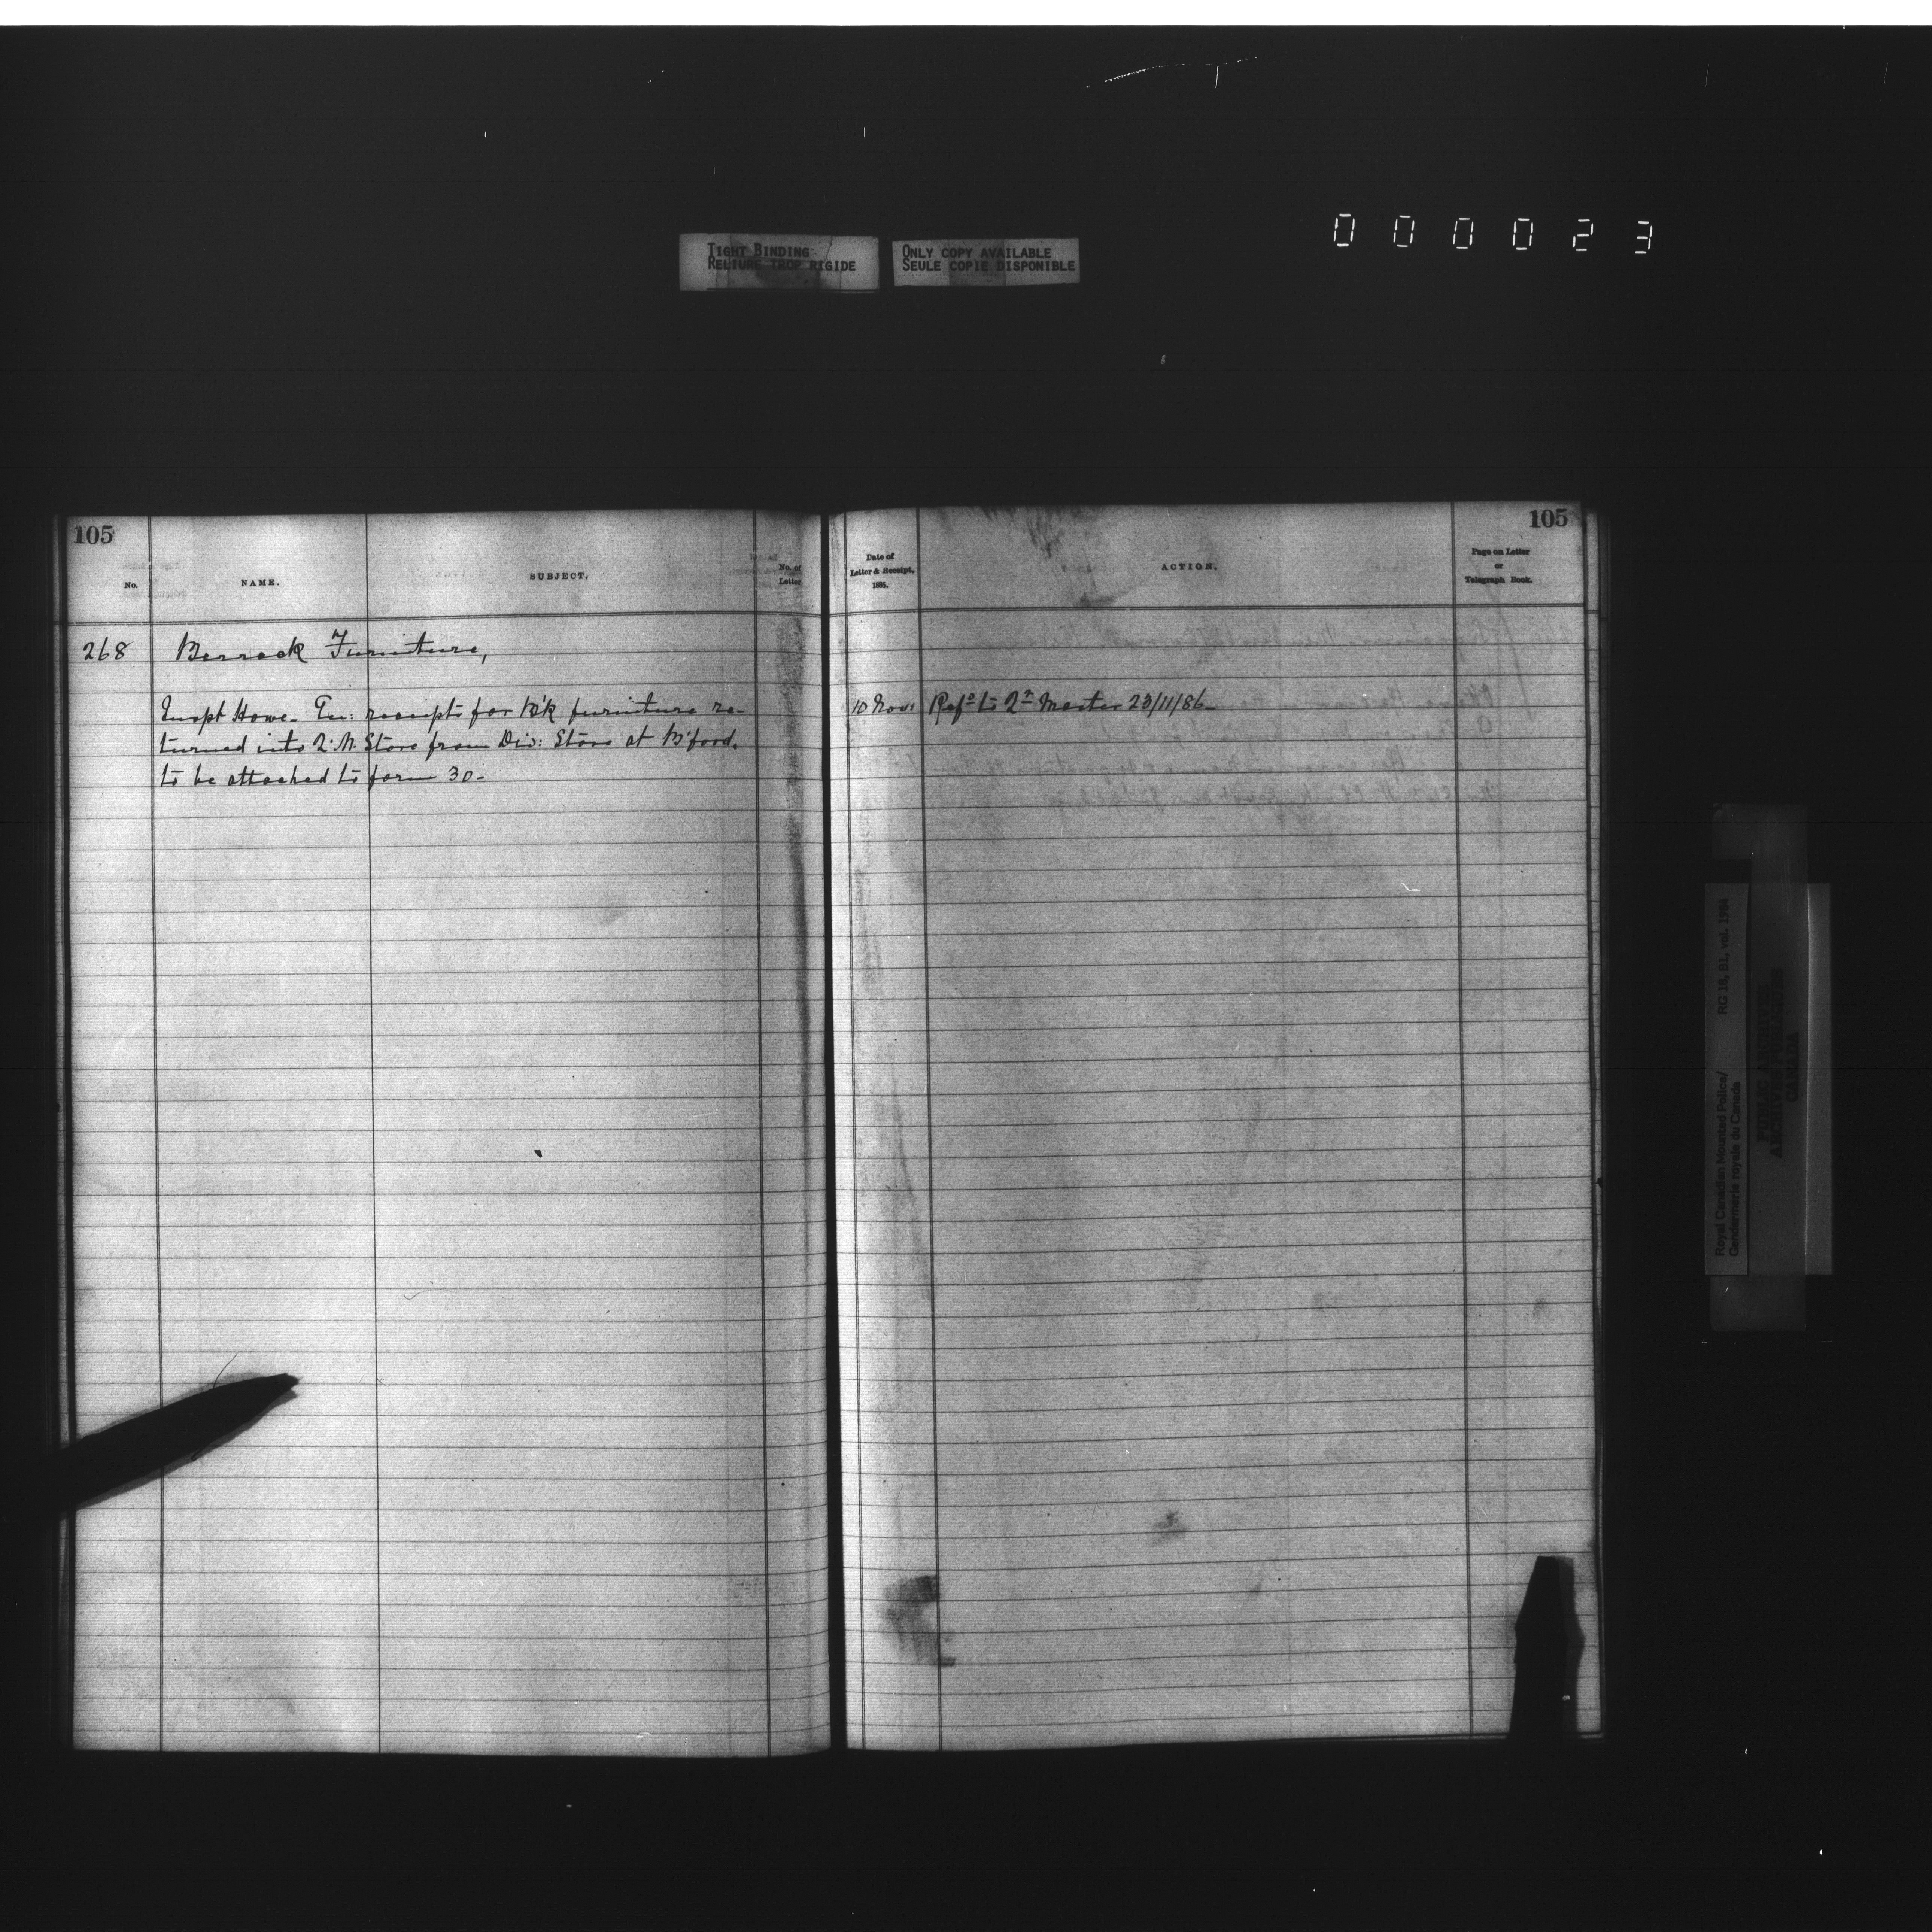 000023
TIGHT BINDING
RELIURE TROP RIGIDE
ONLY COPY AVAILABLE
SEULE COPIE DISPONIBLE
105
No.
NAME.
SUBJECT.
No. of
Letter
268 Barrack Furniture,
Inspt Howe. En: receipts for B'k furniture re-
turned into Q.M. Store from Div: Store at B'ford.
to be attached to form 30-
105
Date of
Letter & Receipt,
1885.
ACTION.
Page on Letter
or
Telegraph Book.
10 Nov: Refd to Qr Master 23/11/86
Royal Canadian Mounted Police/ RG 18, B1, vol. 1984
Gendarmerie royale du Canada
PUBLIC ARCHIVES
ARCHIVES PUBLIQUES
CANADA